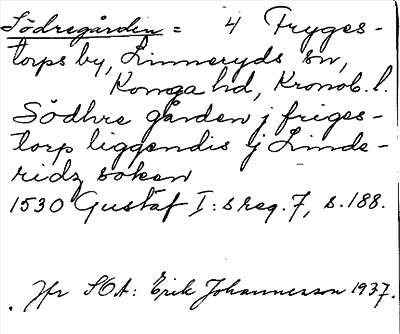 Södregården = 4 Fryges-
torps by, Linneryds sn,
Konga hd, Kronob. l.
Södhre gården j friges-
torp liggendis j Linde-
ridz soken
1530 Gustaf I:s reg. 7, s. 188.
Jfr SOA: Erik Johannesson 1937.